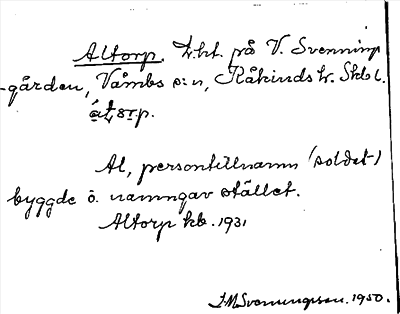 Altorp. Lht. på V. Svenning
-gården, Våmbs s:n, Kåkinds hr. Skbl.
Al, persontillnamn (soldat)
byggde o. namngav stället.
Altorp kb. 1931
1950.